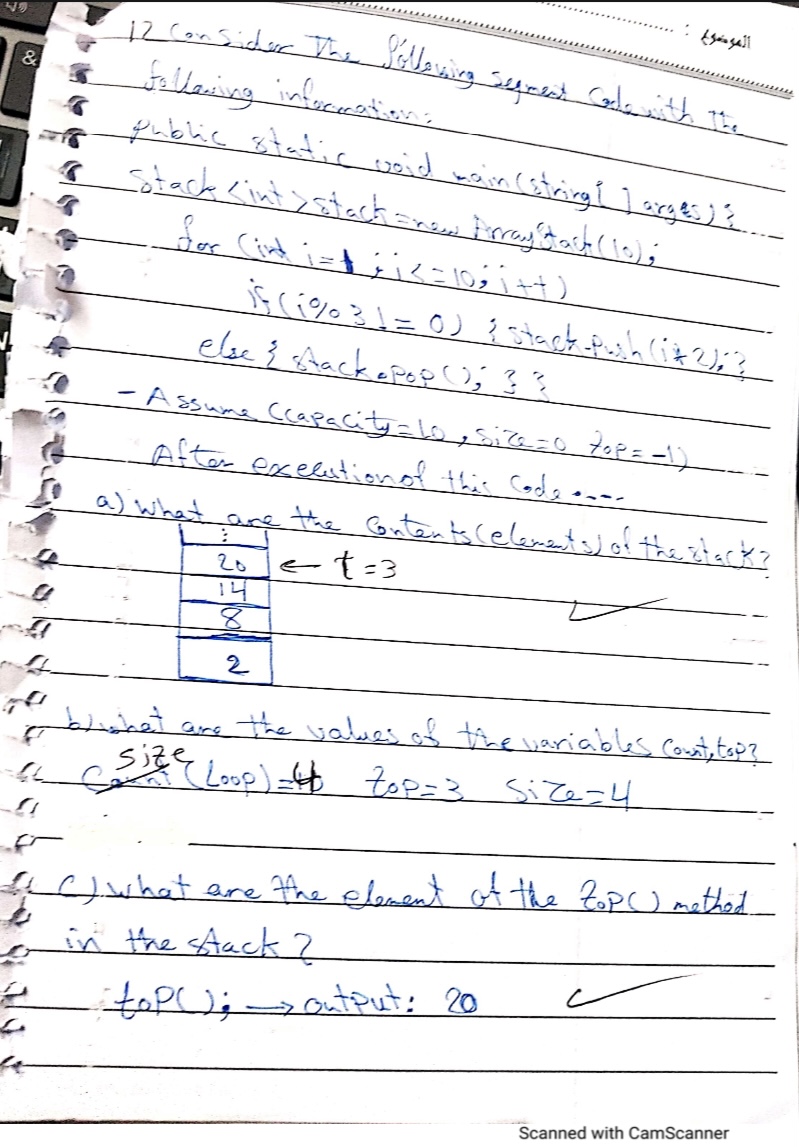 الموضوع :
12 Consider The following segment Code with The
following information:
public static void main(string[ ] arges) {
Stack <int> stack = new ArrayStack(10);
for (int i=1 ; i<=10; i++)
if (i%3 != 0) { stack.push(i*2); }
else { stack.pop(); } }
- Assume (capacity=10, size=0 top=-1)
After execution of this Code ....
a) what are the Contents (elements) of the stack?
20 ← t=3
14
8
2
b) what are the values of the variables Count, top?
size
Count (Loop) =4 top=3 Size=4
c) what are the element of the top() method
in the stack ?
top(); → output: 20
Scanned with CamScanner